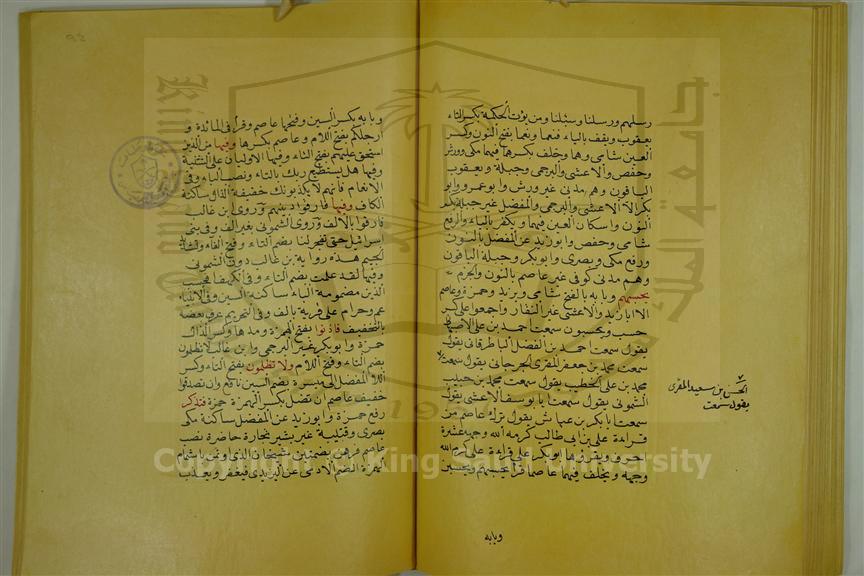 رسلهم ورسلنا وسبلنا ومن يؤت الحكمة بكسر التاء
يعقوب ويقف بالياء فنعما ونعما بفتح النون وكسر
العين شامي وها وخلف بكسرها فيهما مكي وورش
وحفص والاعشى والبرجمي وجبلة و يعقوب
الباقون وهم مدني غير ورش وابو عمرو وابو
بكر الا الاعشى والبرجمي والمفضل غير جبلة بكسر
النون واسكان العين فيهما ويكفر بالياء والرفع
شامي وحفص وابو زيد عن المفضل بالنون
ورفع مكي وبصري وابو بكر وجبلة الباقون
وهم مدني كوفي غير عاصم بالنون والجزم
يحسبهم وبابه بالفتح شامي ويزيد وحمزة وعاصم
الا ابا زيد والاعشى غير النقار واجمعوا على كسر
حسب ويحسبون سمعت احمد بن علي الاصبهاني
يقول سمعت احمد بن الفضل الباطرقاني يقول
سمعت محمد بن جعفر المقري الجرجاني يقول سمعت
محمد بن علي الخطيب يقول سمعت محمد بن حبيب
الشموني يقول سمعت ابا يوسف الاعشى يقول
سمعت ابا بكر بن عياش يقول ترك عاصم من
قراءة علي بن ابي طالب كرم الله وجهه عشرة
احرف ويقرؤها ابو بكر على قراءة علي كرم الله
وجهه ويخالف فيهما عاصما قرأ يحسبهم ويحسبن
الحسن بن سعيد المقري
يقول سمعت
وبابه
وبابه بكسر السين وفتحها عاصم وقرأ في المائدة و
ارجلكم بفتح اللام وعاصم بكسرها وفيها من الذين
استحق عليهم بفتح التاء وفيها الاوليان على التثنية
وفيها هل يستطيع ربك بالتاء ونصب الباء وفي
الانعام فانهم لا يكذبونك خفيفة الذال ساكنة
الكاف وفيها فارقوا دينهم وروى بن غالب
فارقوا بالالف وروى الشموني بغير الف وفي بني
اسرائيل حتى تفجر لنا بضم التاء وفتح الفاء وتشديد
الجيم هذه رواية بن غالب دون الشموني
وفيها لقد علمت بضم التاء وفي الكهف افحسب
الذين مضمومة الباء ساكنة السين وفي الانبياء
وحرام على قرية بالف وفي التحريم عرف بعضه
بالتخفيف فاذنوا بفتح الهمزة ومدها وكسر الذال
حمزة وابو بكر غير البرجمي وابن غالب لا تظلمون
بضم التاء وفتح اللام ولا تظلمون بفتح التاء وكسر
اللام المفضل الى ميسرة بضم السين نافع وان تصدقوا
خفيف عاصم ان تضل بكسر الهمزة حمزة فتذكر
رفع حمزة وابو زيد عن المفضل ساكنة مكي
بصري وقتيبة غير بشير تجارة حاضرة نصب
عاصم فرهن بضمتين شيخان الذي اوتمن باشمام
الهمزة الضم الادمي عن اليزيدي فيغفر ويعذب
Copyright © King Saud University
جامعة الملك سعود
1957